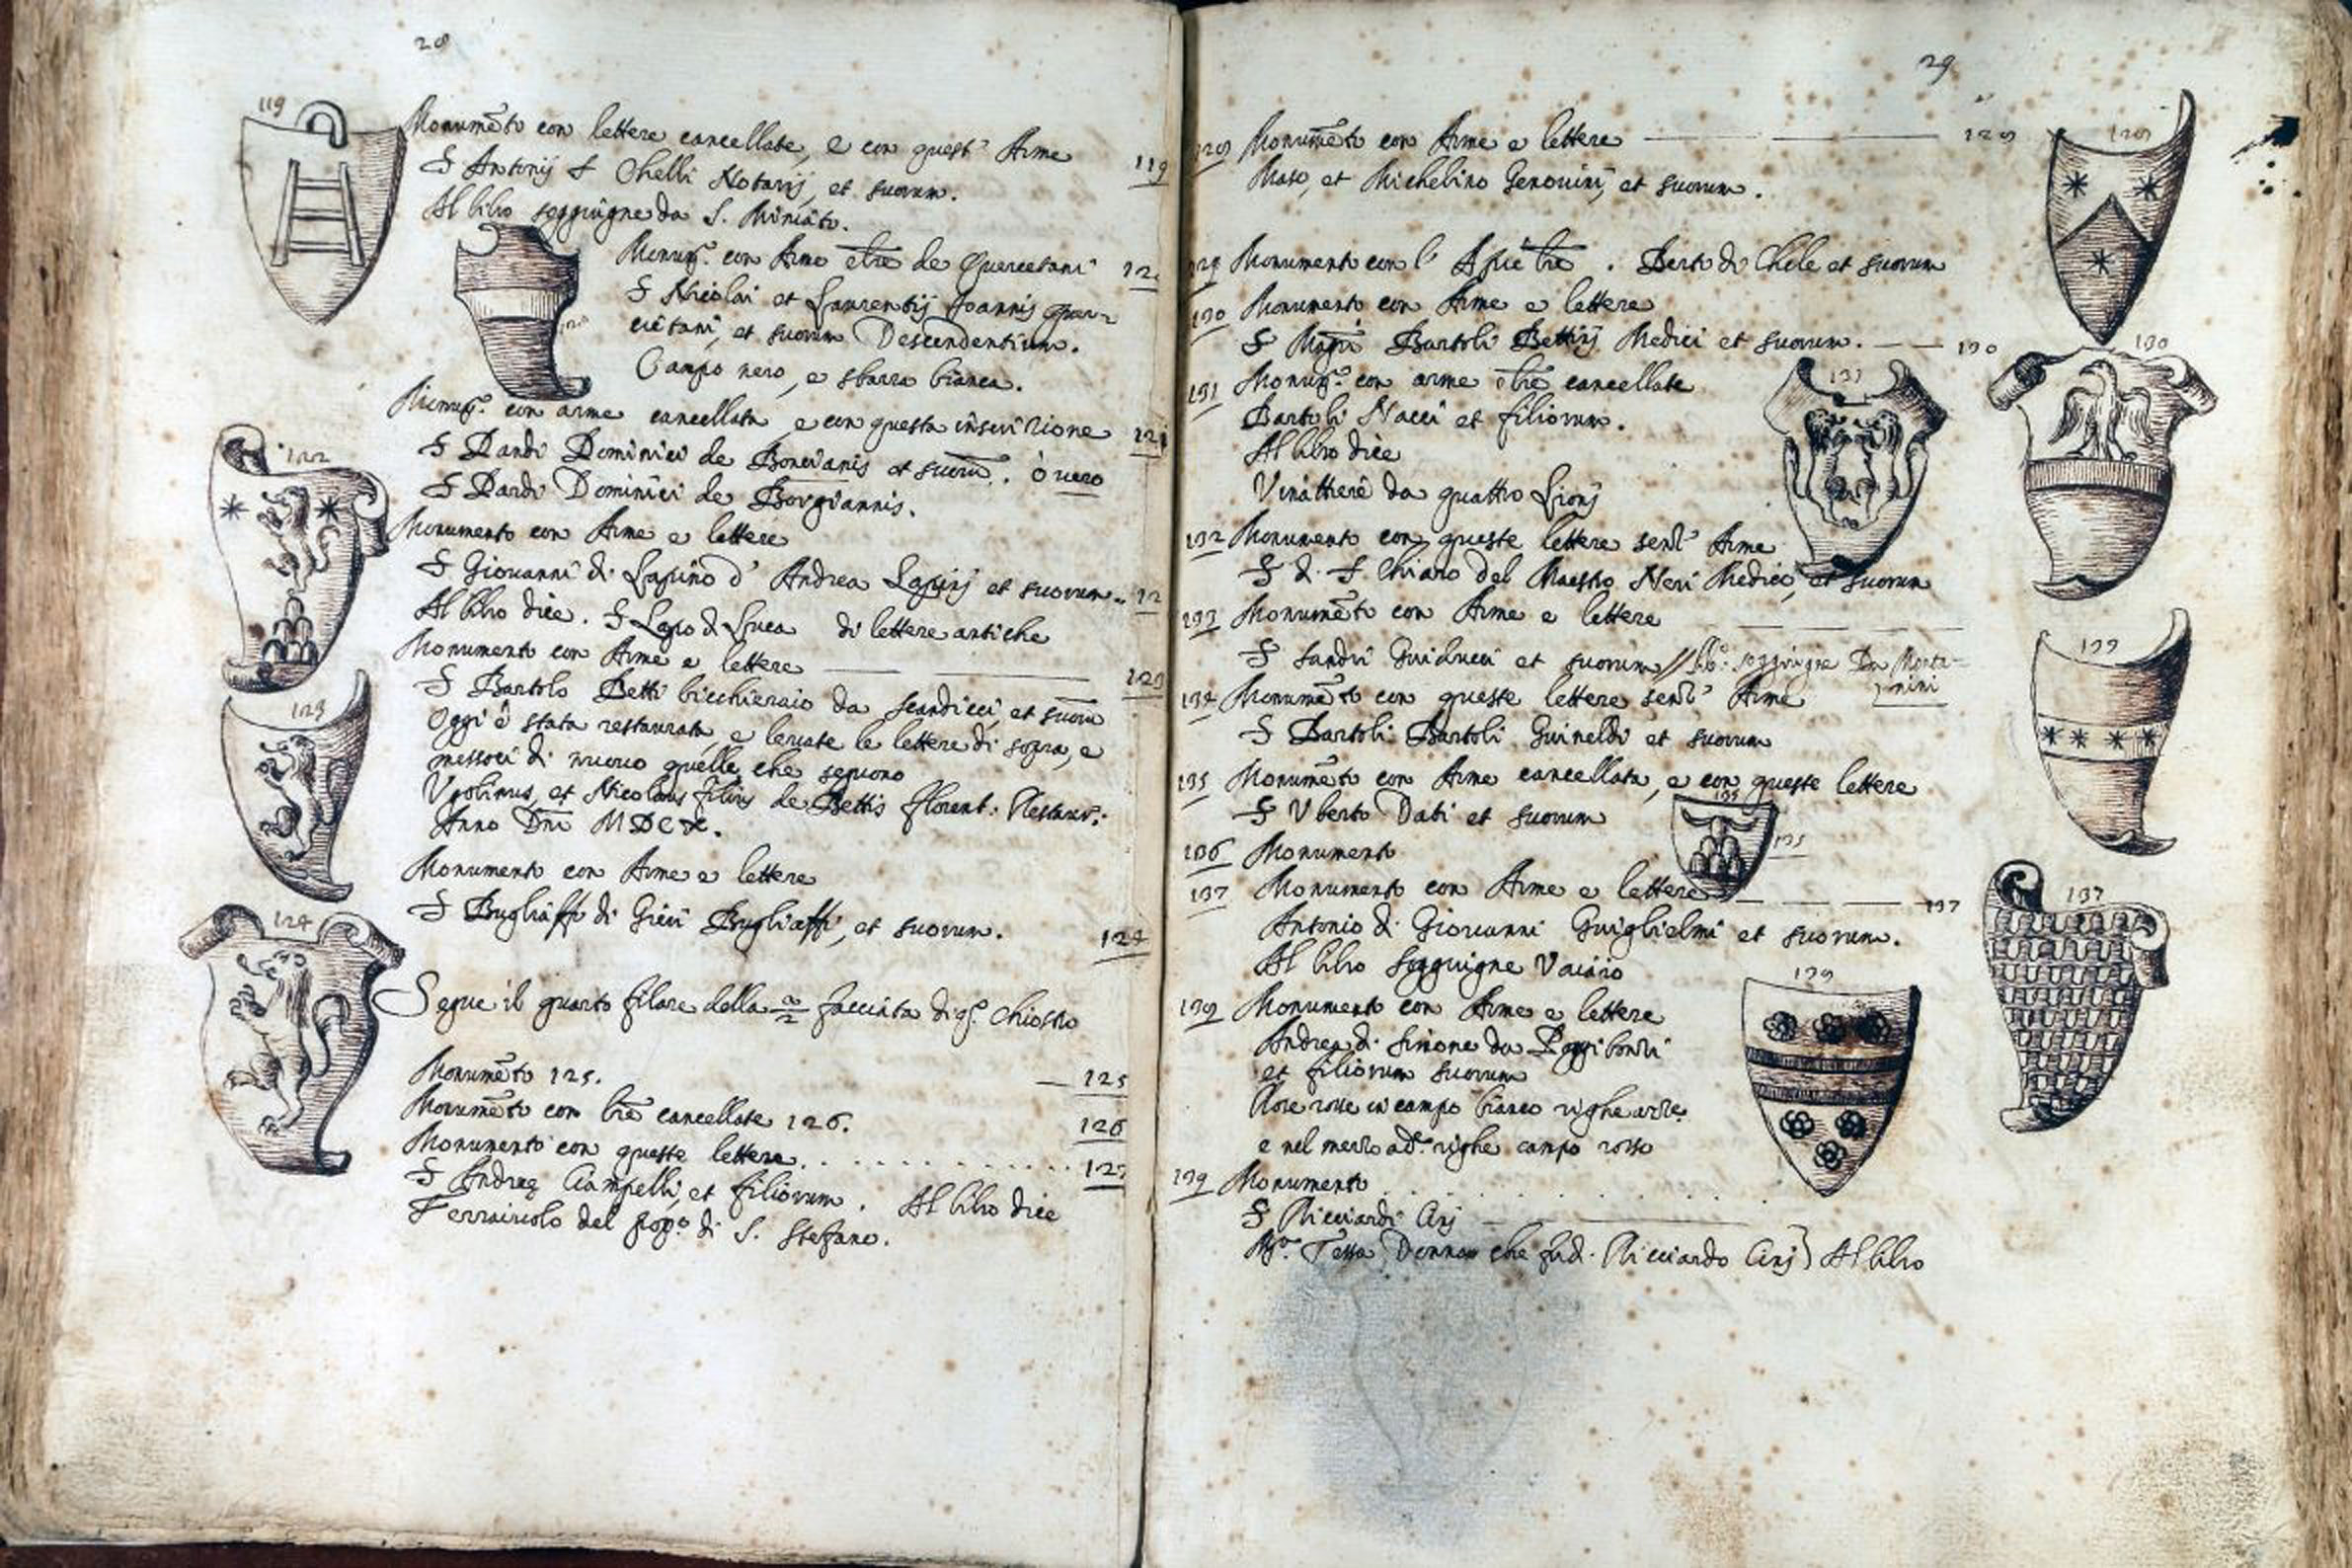 28
119
Monumẽto con lettere cancellate, e con quest' Arme 119
S Antonij S Chelli Notarij, et suorum.
Al libro soggiugne da S. Miniato.
Monum.º con Arme e lr̃e de Quercetani 12
120
S Nicolai et Laurentij Joannis Quer=
cetani, et suorum Descendentium.
Campo nero, e sbarra bianca.
Monum.º con arme cancellata, e con questa inscrizione 121
S Dandi Dominici de Boncianis et suorũ. ò vero
S Dardi Dominici de Borgiannis.
122
Monumento con Arme e lettere
S Giovanni di Lapino d' Andrea Lapinj et suorum 12
Al libro dice. S Lapo di Luca di lettere antiche
Monumento con Arme e lettere 123
123
S Bartolo Betti bicchieraio da Scandicci, et suorũ
Oggi è stata restaurata, e levate le lettere di sopra, e
messoci di nuovo quelle che seguono
Vgolinus, et Nicolaus filius de Bettis florent: Restaur:
Anno Dñi MDCX.
Monumento con Arme e lettere
124
S Bugliaffo di Gieri Bugliaffi, et suorum. 124
Segue il quarto filare della 2ª facciata di q.º Chiostro
Monumẽto 125. 125
Monumẽto con lr̃e cancellate 126. 126
Monumento con queste lettere. 127
S Andreę Ciampelli, et filiorum. Al libro dice
Ferraiuolo del pop.º di S. Stefano.
29
128 Monumẽto con Arme e lettere 128
128
Maso, et Michelino Genovini, et suorum.
129 Monumento con l' Berto di Chele et suorum
130 Monumento con Arme e lettere
130
S Mag̃ri Bartoli Bettinj Medici et suorum. 130
131 Monum.º con arme e lr̃e cancellate
131
Bartoli Nacci et filiorum.
Al libro dice
Vinattiere da quattro Lionj
132 Monumento con queste lettere senz' Arme
S d. S Chiaro del Maestro Neri Medico, et suorum
133 Monumẽto con Arme e lettere
133
S Sandri Guiducci et suorum // lib.º soggiugne Da Monta=
nini
134 Monumẽto con queste lettere senz' Arme
S Bartoli Bartoli Guineldi et suorum
135 Monumẽto con Arme cancellata, e con queste lettere
135
S Vberto Dati et suorum
135
136 Monumento
137 Monumento con Arme e lettere 137
137
Antonio di Giovanni Guiglielmi et suorum.
Al libro soggiugne Vaiaio
138
138 Monumento con Arme e lettere
Andrea di Simone da Poggibonzi
et filiorum suorum
Rose rosse in campo bianco righe
e nel mezzo a d.e righe campo rosso
139 Monumento
S Ricciardi Cinj
M.ª Tessa Donna che fu d. Ricciardo Cinj) Al libro